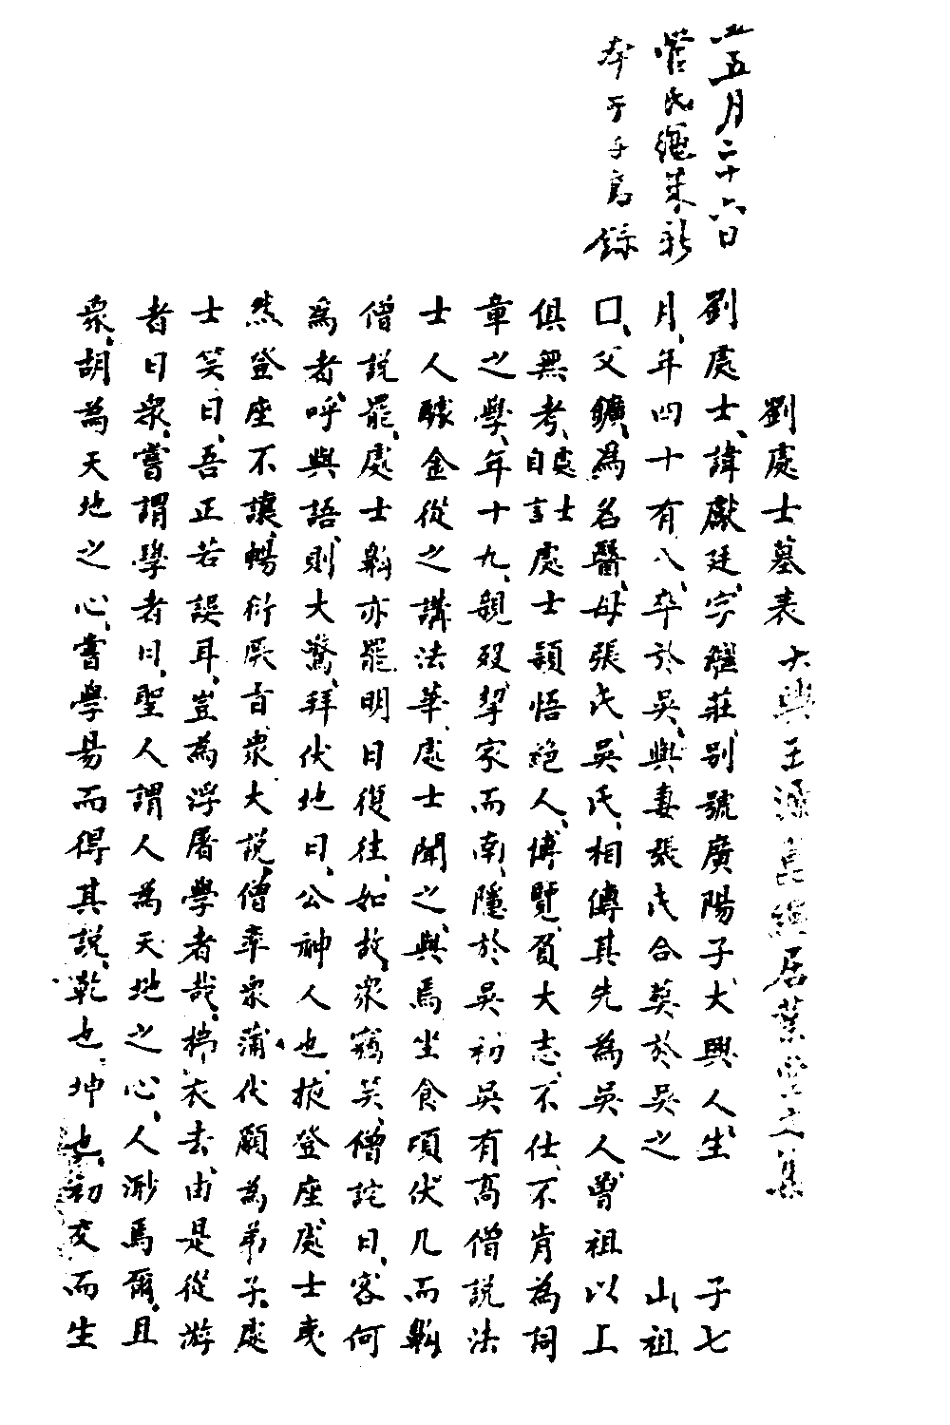 劉處士墓表 大興王源崑繩居業堂文集
五月二十六日
劉處士、諱獻廷、字繼莊、別號廣陽子、大興人、生 子七
月、年四十有八、卒於吳、與妻張氏合葬於吳之 山、祖
口、父鑛、為名醫、母張氏、吳氏、相傳其先為吳人、曾祖以上
俱無考、處士自言處士穎悟絕人、博覽、負大志、不仕、不肯為詞
章之學、年十九、親歿、挈家而南、隱於吳、初吳有高僧說法
士人醵金從之講法華、處士聞之、與焉坐食頃伏几而鼾
僧說罷、處士鼾亦罷、明日復往、如故、衆竊笑、僧詫曰、客何
為者、呼與語、則大驚、拜伏地曰、公神人也、掖登座、處士夷
然登座不讓、暢衍厥旨、衆大說、僧率衆蒲伏願為弟子、處
士笑曰、吾正若誤耳、豈為浮屠學者哉、拂衣去、由是從游
者日衆、嘗謂學者曰、聖人謂人為天地之心、人渺焉爾、且
衆、胡為天地之心、嘗學易而得其說、乾也、坤也、初交而生